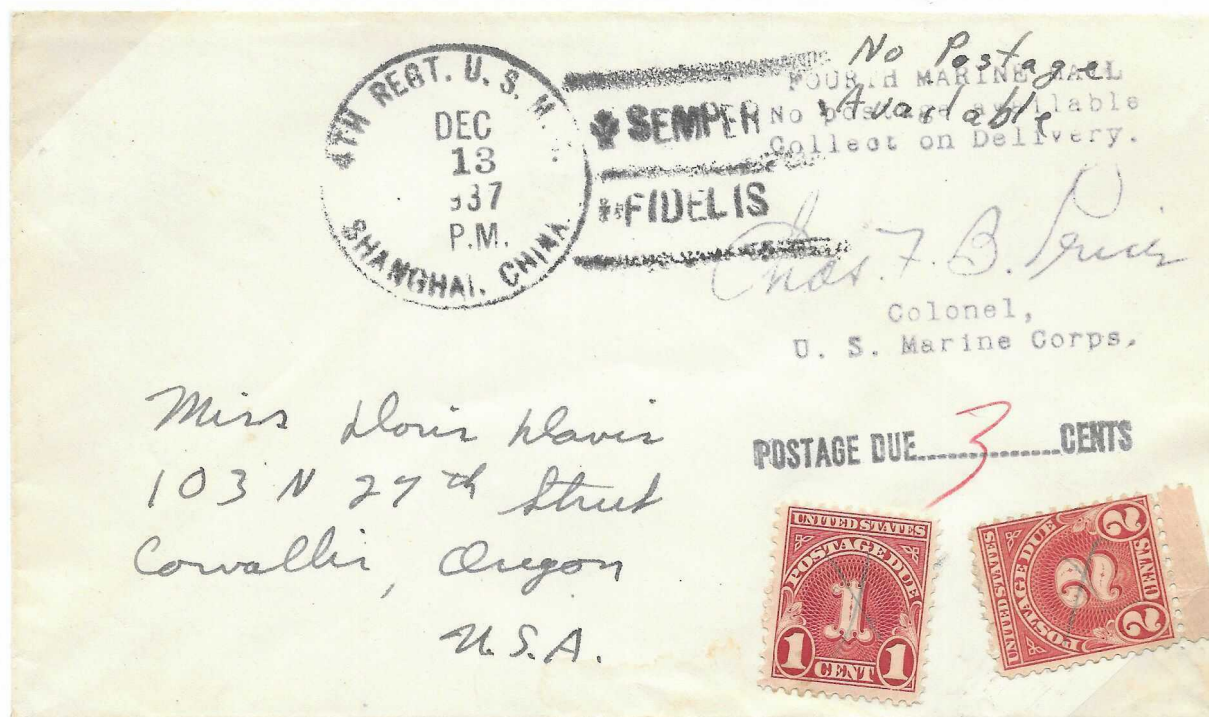 4TH REGT. U. S. M.
DEC
13
1937
P.M.
SHANGHAI, CHINA.
SEMPER
FIDELIS
No Postage
Available
FOURTH MARINE MAIL
No postage available
Collect on Delivery.
Chas. F. B. Price
Colonel,
U. S. Marine Corps.
Miss Doris Davis
103 N 27th Street
Corvallis, Oregon
U.S.A.
POSTAGE DUE 3 CENTS
UNITED STATES
POSTAGE DUE
1
1 CENT 1
UNITED STATES
POSTAGE DUE
2
2 CENTS 2